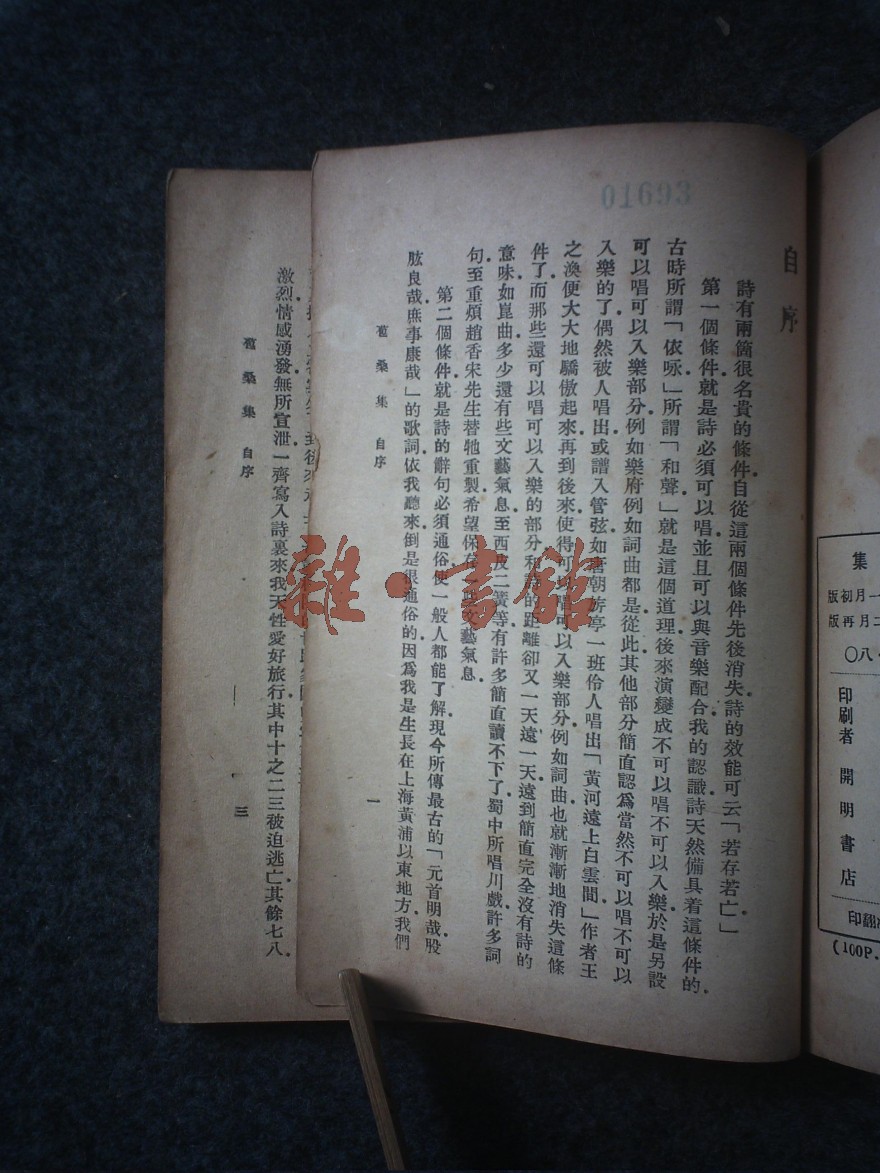 01693
自序
詩有兩箇很名貴的條件自從這兩個條件先後消失詩的效能可云「若存若亡」
第一個條件就是詩必須可以唱並且可以與音樂配合我的認識詩天然備具着這條件的
古時所謂「依咏」所謂「和聲」就是這個道理後來演變成不可以唱不可以入樂於是另設
可以唱可以入樂部分例如樂府例如詞曲都是從此其他部分簡直認爲當然不可以唱不可以
入樂的了偶然被人唱出或譜入管弦如唐朝旗亭一班伶人唱出「黃河遠上白雲間」作者王
之渙便大大地驕傲起來再到後來使得可以唱可以入樂部分例如詞曲也就漸漸地消失這條
件了而那些還可以唱可以入樂的部分和詩的距離卻又一天遠一天遠到簡直完全沒有詩的
意味如崑曲多少還有些文藝氣息至西皮二簧等有許多簡直讀不下了蜀中所唱川戲許多詞
句至重煩趙香宋先生替牠重製希望保存一些文藝氣息
第二個條件就是詩的辭句必須通俗使一般人都能了解現今所傳最古的「元首明哉股
肱良哉庶事康哉」的歌詞依我聽來倒是很通俗的因爲我是生長在上海黃浦以東地方我們
桑集 自序
一
激烈情感湧發無所宣泄一齊寫入詩裏來我天性愛好旅行其中十之二三被迫逃亡其餘七八
桑集 自序
三
集
一月初版
二月再版
八〇
印刷者 開明書店
翻印
(100P.
雜·書館